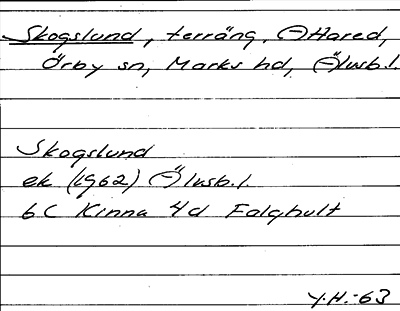 Skogslund, terräng, Ⓗ Hared,
Örby sn, Marks hd, Älvsb.l.
Skogslund
ek (1962) Älvsb.l.
6C Kinna 4d Folghult
Y.H.-63